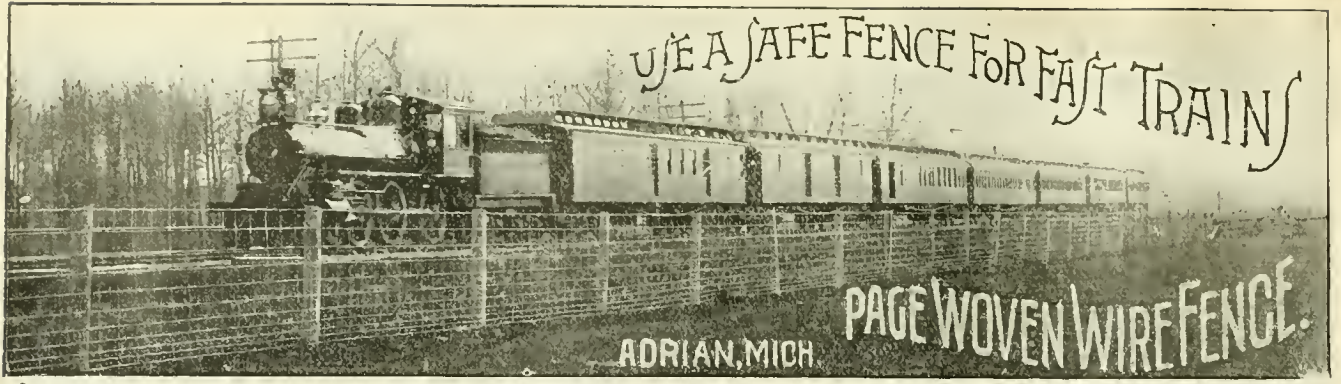 USE A SAFE FENCE FOR FAST TRAINS
PAGE WOVEN WIRE FENCE.
ADRIAN, MICH